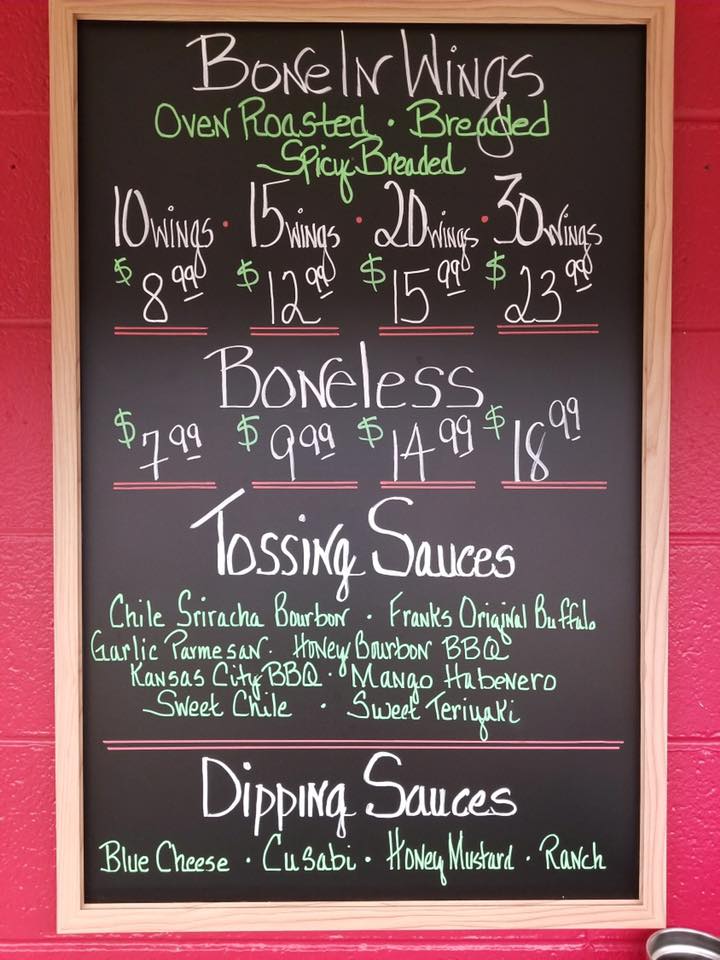 Bone In Wings
Oven Roasted · Breaded
Spicy Breaded
10 wings · 15 wings · 20 wings · 30 wings
$8.99 $12.99 $15.99 $23.99
Boneless
$7.99 $9.99 $14.99 $18.99
Tossing Sauces
Chile Sriracha Bourbon · Franks Original Buffalo
Garlic Parmesan · Honey Bourbon BBQ
Kansas City BBQ · Mango Habenero
Sweet Chile · Sweet Teriyaki
Dipping Sauces
Blue Cheese · Cusabi · Honey Mustard · Ranch